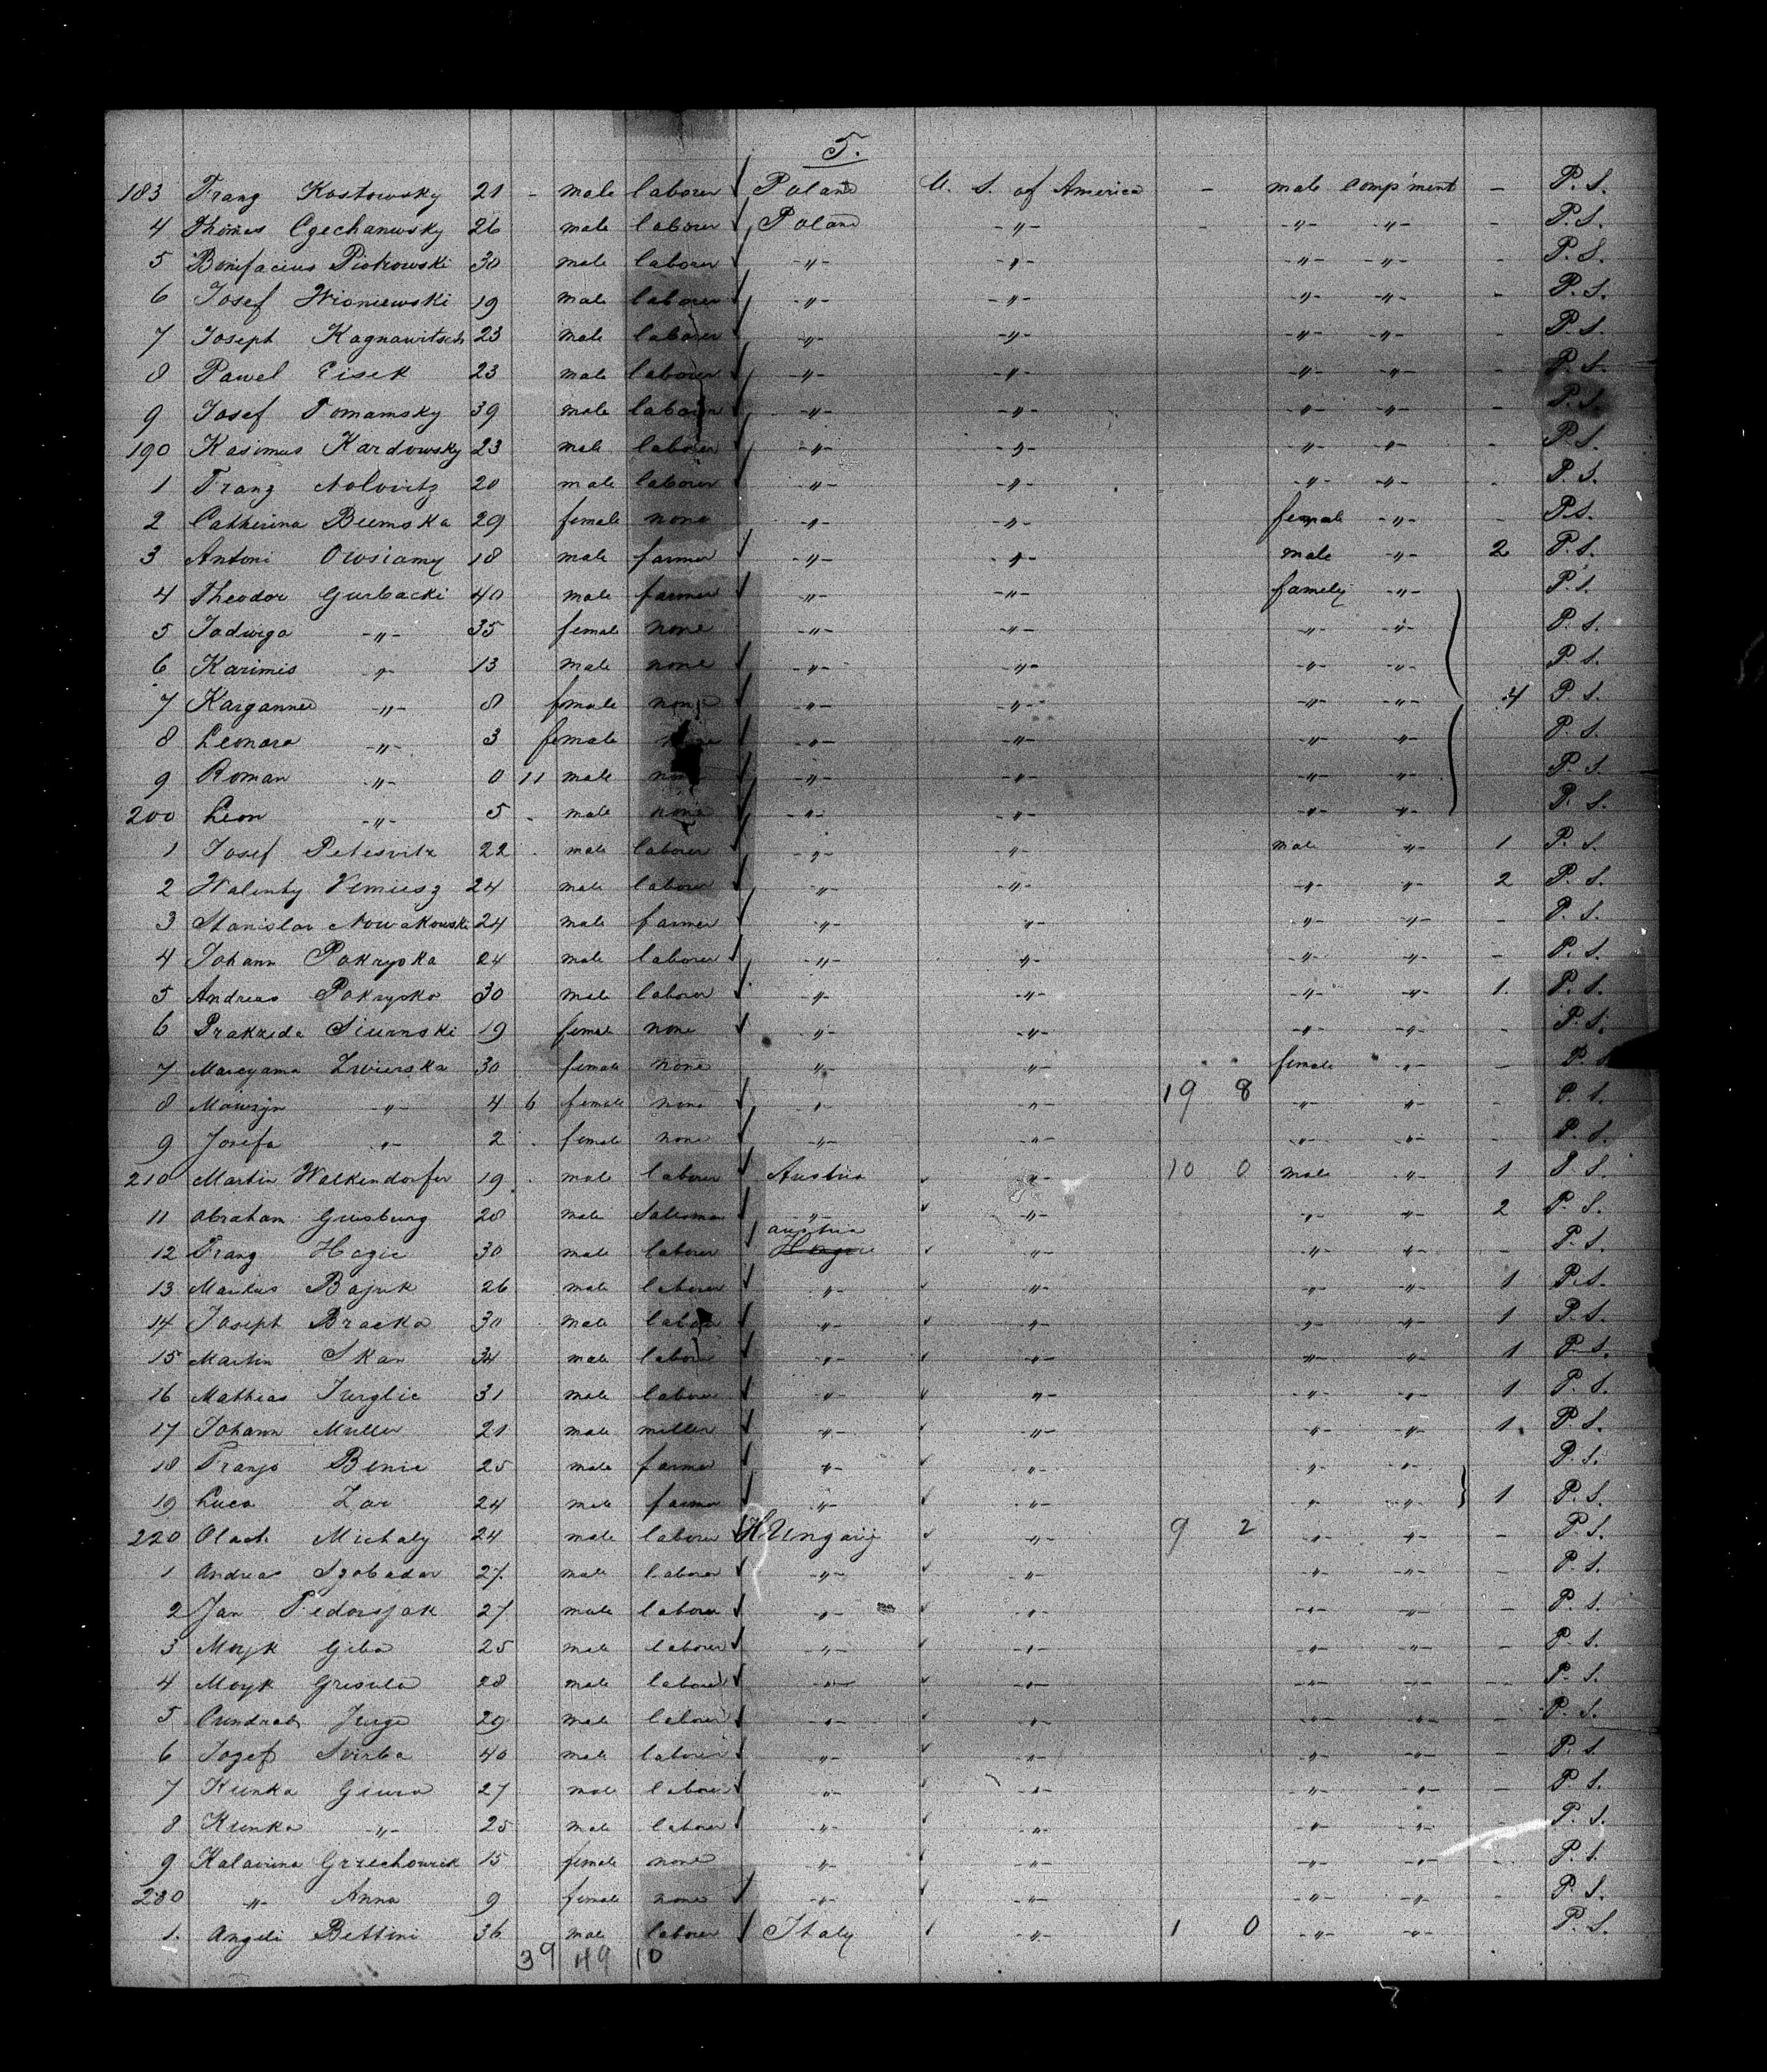 5.
183 Franz Kostowsky 21 - male laborer Poland U. S. of America - male comp'ment - P. S.
4 Thomas Czechanwsky 26 male laborer Poland -"- - -"- -"- - P. S.
5 Bonifacius Piotrowski 30 male laborer -"- -"- -"- -"- - P. S.
6 Josef Wisniewski 19 male laborer -"- -"- -"- -"- - P. S.
7 Joseph Kagnawitsch 23 male laborer -"- -"- -"- -"- - P. S.
8 Pawel Cisek 23 male laborer -"- -"- -"- -"- - P. S.
9 Josef Tomamsky 39 male laborer -"- -"- -"- -"- - P. S.
190 Kasimus Kardowsky 23 male laborer -"- -"- -"- -"- - P. S.
1 Franz Nolovitz 20 male laborer -"- -"- -"- -"- - P. S.
2 Catherina Bumska 29 female none -"- -"- female -"- - P. S.
3 Antoni Owsiamy 18 male farmer -"- -"- male -"- 2 P. S.
4 Theodor Gurbacki 40 male farmer -"- -"- family -"- P. S.
5 Jadwiga -"- 35 female none -"- -"- -"- -"- P. S.
6 Karimis -"- 13 male none -"- -"- -"- -"- P. S.
7 -"- 8 female none -"- -"- -"- -"- 4 P. S.
8 Leonara -"- 3 female none -"- -"- -"- -"- P. S.
9 Roman -"- 0 11 male none -"- -"- -"- -"- P. S.
200 Leon -"- 5 - male none -"- -"- -"- -"- P. S.
1 Josef Petesvitz 22 - male laborer -"- -"- male -"- 1 P. S.
2 Walenty 24 male laborer -"- -"- -"- -"- 2 P. S.
3 Stanislav Nowakowski 24 male farmer -"- -"- -"- -"- - P. S.
4 Johann Pokryska 24 male laborer -"- -"- -"- -"- - P. S.
5 Andreas Pokrysko 30 male laborer -"- -"- -"- -"- 1. P. S.
6 Prakzeda Siurnski 19 female none -"- -"- -"- -"- - P. S.
7 Mareyama Zwierska 30 female none -"- -"- female -"- - P. S.
8 -"- 4 6 female none -"- -"- 19 8 -"- -"- - P. S.
9 Josefa -"- 2 - female none -"- -"- -"- -"- - P. S.
210 Martin Walkendorfer 19 - male laborer Austria -"- 10 0 male -"- 1 P. S.
11 Abraham Ginsburg 28 male Salesman -"- -"- -"- -"- 2 P. S.
austria
12 Franz Hogic 30 male laborer -"- -"- -"- - P. S.
13 Markus Bajuk 26 male laborer -"- -"- -"- -"- 1 P. S.
14 Joseph Bracka 30 male laborer -"- -"- -"- -"- 1 P. S.
15 Martin Skar 34 male laborer -"- -"- -"- -"- 1 P. S.
16 Mathias Jurglic 31 male laborer -"- -"- -"- -"- 1 P. S.
17 Johann Muller 21 male miller -"- -"- -"- -"- 1 P. S.
18 Franjo Benic 25 male farmer -"- -"- -"- -"- P. S.
19 Luca Zar 24 male farmer -"- -"- -"- -"- 1 P. S.
220 Olach Michaly 24 male laborer Hungary -"- 9 2 -"- -"- - P. S.
1 Andreas Szobadar 27 male laborer -"- -"- -"- -"- - P. S.
2 Jan Pedorsjak 27 male laborer -"- -"- -"- -"- - P. S.
3 Moyk Giba 25 male laborer -"- -"- -"- -"- - P. S.
4 Moyk Grisula 28 male laborer -"- -"- -"- -"- - P. S.
5 Cundrat Jurge 29 male laborer -"- -"- -"- -"- - P. S.
6 Jozef Svirba 40 male laborer -"- -"- -"- -"- - P. S.
7 Kunka Giura 27 male laborer -"- -"- -"- -"- - P. S.
8 Kunka -"- 25 male laborer -"- -"- -"- -"- - P. S.
9 Katarina Grzechowick 15 female none -"- -"- -"- -"- - P. S.
230 -"- Anna 9 female none -"- -"- -"- -"- - P. S.
1. Angeli Bettini 36 male laborer Italy -"- 1 0 -"- -"- P. S.
39 49 10